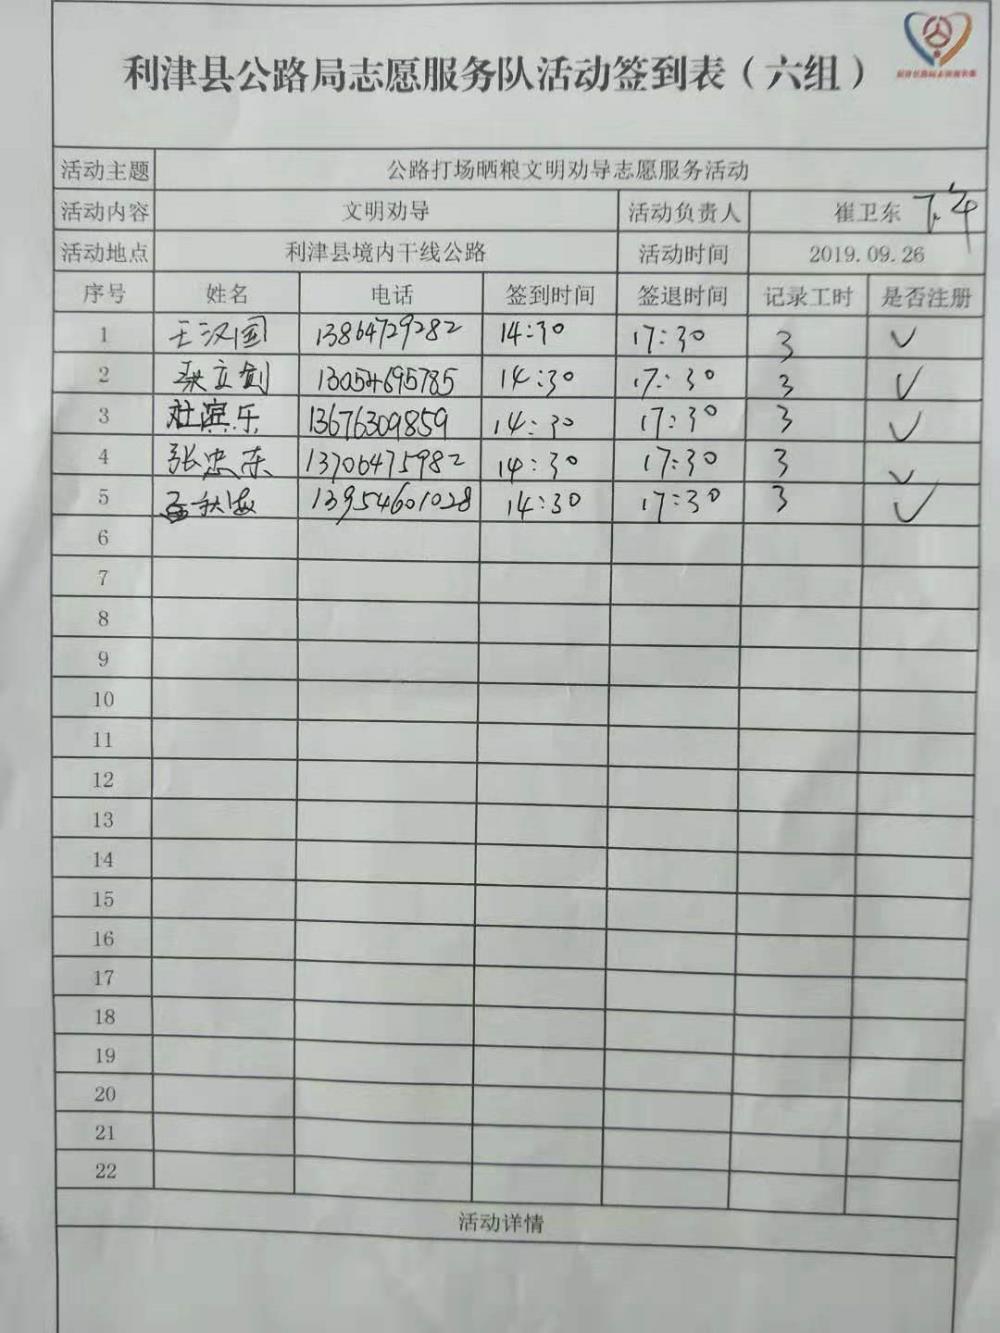 利津县公路局志愿服务队活动签到表（六组）
活动主题 公路打场晒粮文明劝导志愿服务活动
活动内容 文明劝导 活动负责人 崔卫东 下午
活动地点 利津县境内干线公路 活动时间 2019.09.26
序号 姓名 电话 签到时间 签退时间 记录工时 是否注册
1 王汉国 13864729282 14:30 17:30 3 ✓
2 桑立剑 13054695785 14:30 17:30 3 ✓
3 杜滨乐 13676309859 14:30 17:30 3 ✓
4 张忠东 13706475982 14:30 17:30 3 ✓
5 13954601028 14:30 17:30 3 ✓
6
7
8
9
10
11
12
13
14
15
16
17
18
19
20
21
22
活动详情